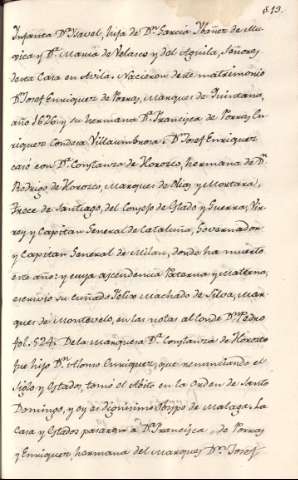 513.
Infanta Dª Isavel, hija de Dⁿ Garcia Ybañez de Mu-
gica y Dª Maria de Velasco y del Aguila, Señores
desta Casa en Avila. Nacieron de este matrimonio
Dⁿ Josef Enriquez de Porras, Marques de Quintana,
año 1636 y su hermana Dª Francisca de Porras En
riquez Condesa Villaumbrosa: Dⁿ Josef Enriquez
casó con Dª Constanza de Horozco, hermana de Dⁿ
Rodrigo de Horozco, Marques de Olias y Mortara,
Trece de Santiago, del Consejo de Estado y Guerra, Vir-
rey y Capitan General de Cataluña, Governador
y Capitan General de Milan, donde ha muerto
este año: y cuya ascendencia Paterna y Materna,
escrivio su cuñado Felix Machado de Silva, Mar-
ques de Montevelo, en las notas al Conde Dⁿ Pedro
fol. 524. De la Marquesa Dª Constanza de Horozco
fue hijo Dⁿ Alonso Enriquez, que renunciando el
Siglo y Estados, tomó el Abito en la Orden de Santo
Domingo, y oy es dignisimo Obispo de Malaga. La
Casa y Estados pasaron a Dª Francisca de Porras
y Enriquez, hermana del Marques Dⁿ Josef